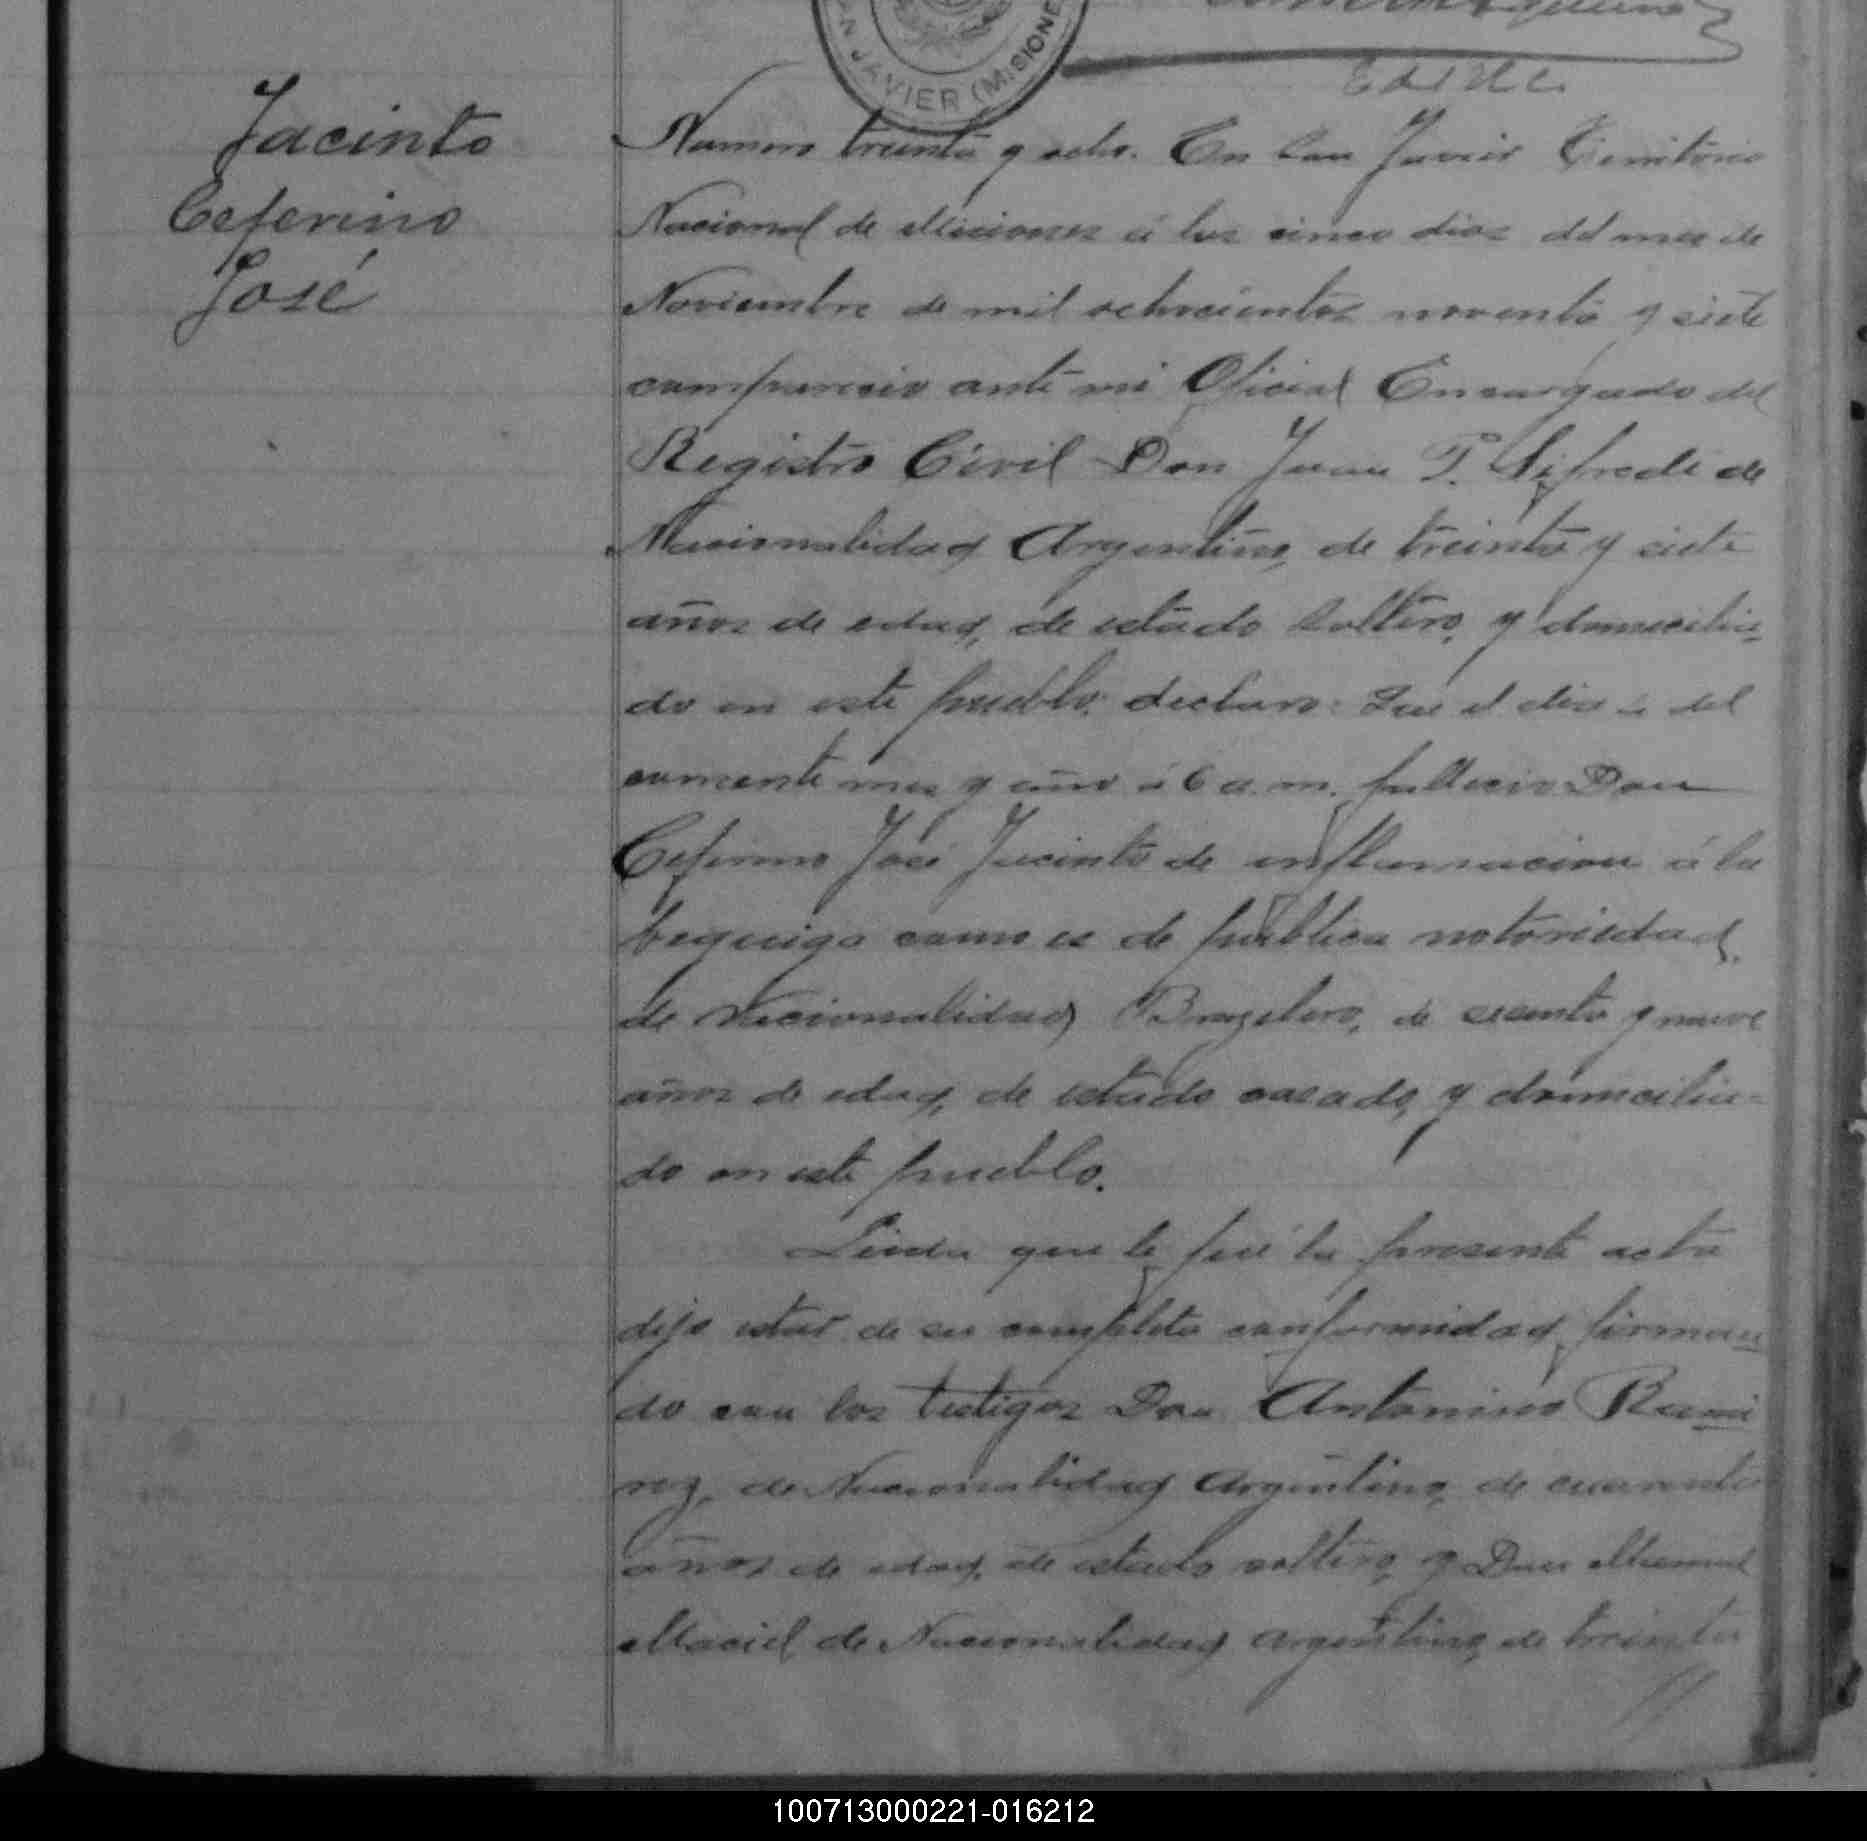 SAN JAVIER (MISIONE
E de R. C.
Jacinto
Ceferino
José
Numero treinta y ocho. En San Javier Territorio
Nacional de Misiones á los cinco dias del mes de
Noviembre de mil ochocientos noventa y siete
comparecio ante mi Oficial Encargado del
Registro Civil Don Juan P. Sifredi de
Nacionalidad Argentino, de treinta y siete
años de edad, de estado soltero, y domicilia-
do en este pueblo, declaro: Que el dia del
corriente mes y año á 6 a.m. fallecio Don
Ceferino José Jacinto de inflamacion á la
beguiga como es de publica notoriedad,
de Nacionalidad Brazilero, de sesenta y nueve
años de edad, de estado casado, y domicilia-
do en este pueblo.
Leida que le fué la presente acta
dijo estar de su completa conformidad, firman
do con los testigos Don Antonino Rami
rez, de Nacionalidad Argentino, de cuarenta
años de edad, de estado soltero, y Don Manuel
Maciel de Nacionalidad Argentino, de treinta
100713000221-016212